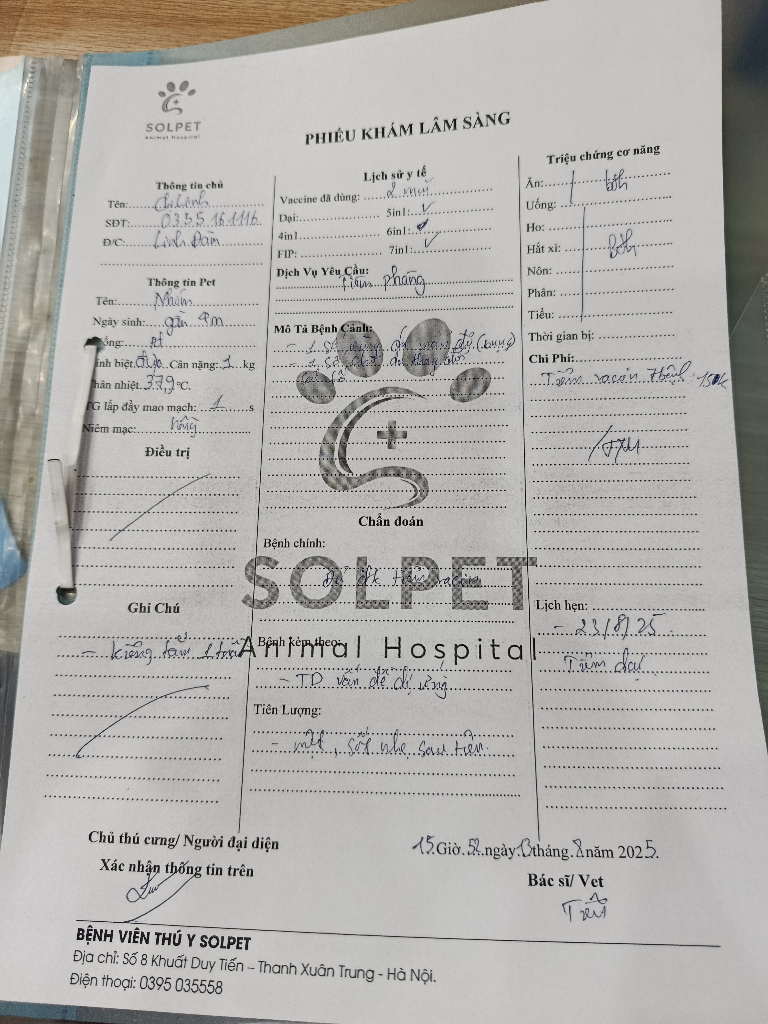 SOLPET
Animal Hospital
PHIẾU KHÁM LÂM SÀNG
Thông tin chủ
Tên: Chị Linh
SĐT: 0355 161116
Đ/C: Linh Đàm
Thông tin Pet
Tên: Nhím
Ngày sinh: gần 4m
Giống:
Tính biệt: Đực Cân nặng: 1 kg
Thân nhiệt 37,9 °C.
TG lấp đầy mao mạch: 1 s
Niêm mạc: hồng
Điều trị
Ghi Chú
- Kiêng tắm 1 tuần
Lịch sử y tế
Vaccine đã dùng: 2 mũi
Dại: 5in1: ✓
4in1 6in1:
FIP: 7in1: ✓
Dịch Vụ Yêu Cầu:
Tiêm phòng
Mô Tả Bệnh Cảnh:
- 1 số vùng
- 1 số
Chẩn đoán
Bệnh chính:
Đủ đk tiêm vacxin
SOLPET
Animal Hospital
Bệnh kèm theo:
- TD vấn đề dị ứng
Tiên Lượng:
- mệt, sốt nhẹ sau tiêm
Triệu chứng cơ năng
Ăn: bth
Uống:
Ho:
Hắt xì: Bth
Nôn:
Phân:
Tiểu:
Thời gian bị:
Chi Phí:
Tiêm vacxin 150k
/TM
Lịch hẹn:
- 23/8/25
Tiêm dại
Chủ thú cưng/ Người đại diện
Xác nhận thông tin trên
15 Giờ 52 ngày 13 tháng 8 năm 2025.
Bác sĩ/ Vet
BỆNH VIỆN THÚ Y SOLPET
Địa chỉ: Số 8 Khuất Duy Tiến – Thanh Xuân Trung - Hà Nội.
Điện thoại: 0395 035558